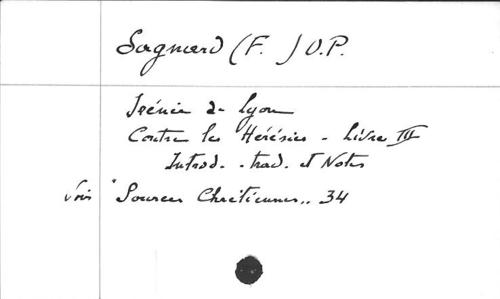 Sagnard (F. ) O.P.
Irénée de Lyon
Contre les Hérésies - Livre III
Introd. - trad. et Notes
Voir "Sources Chrétiennes" 34